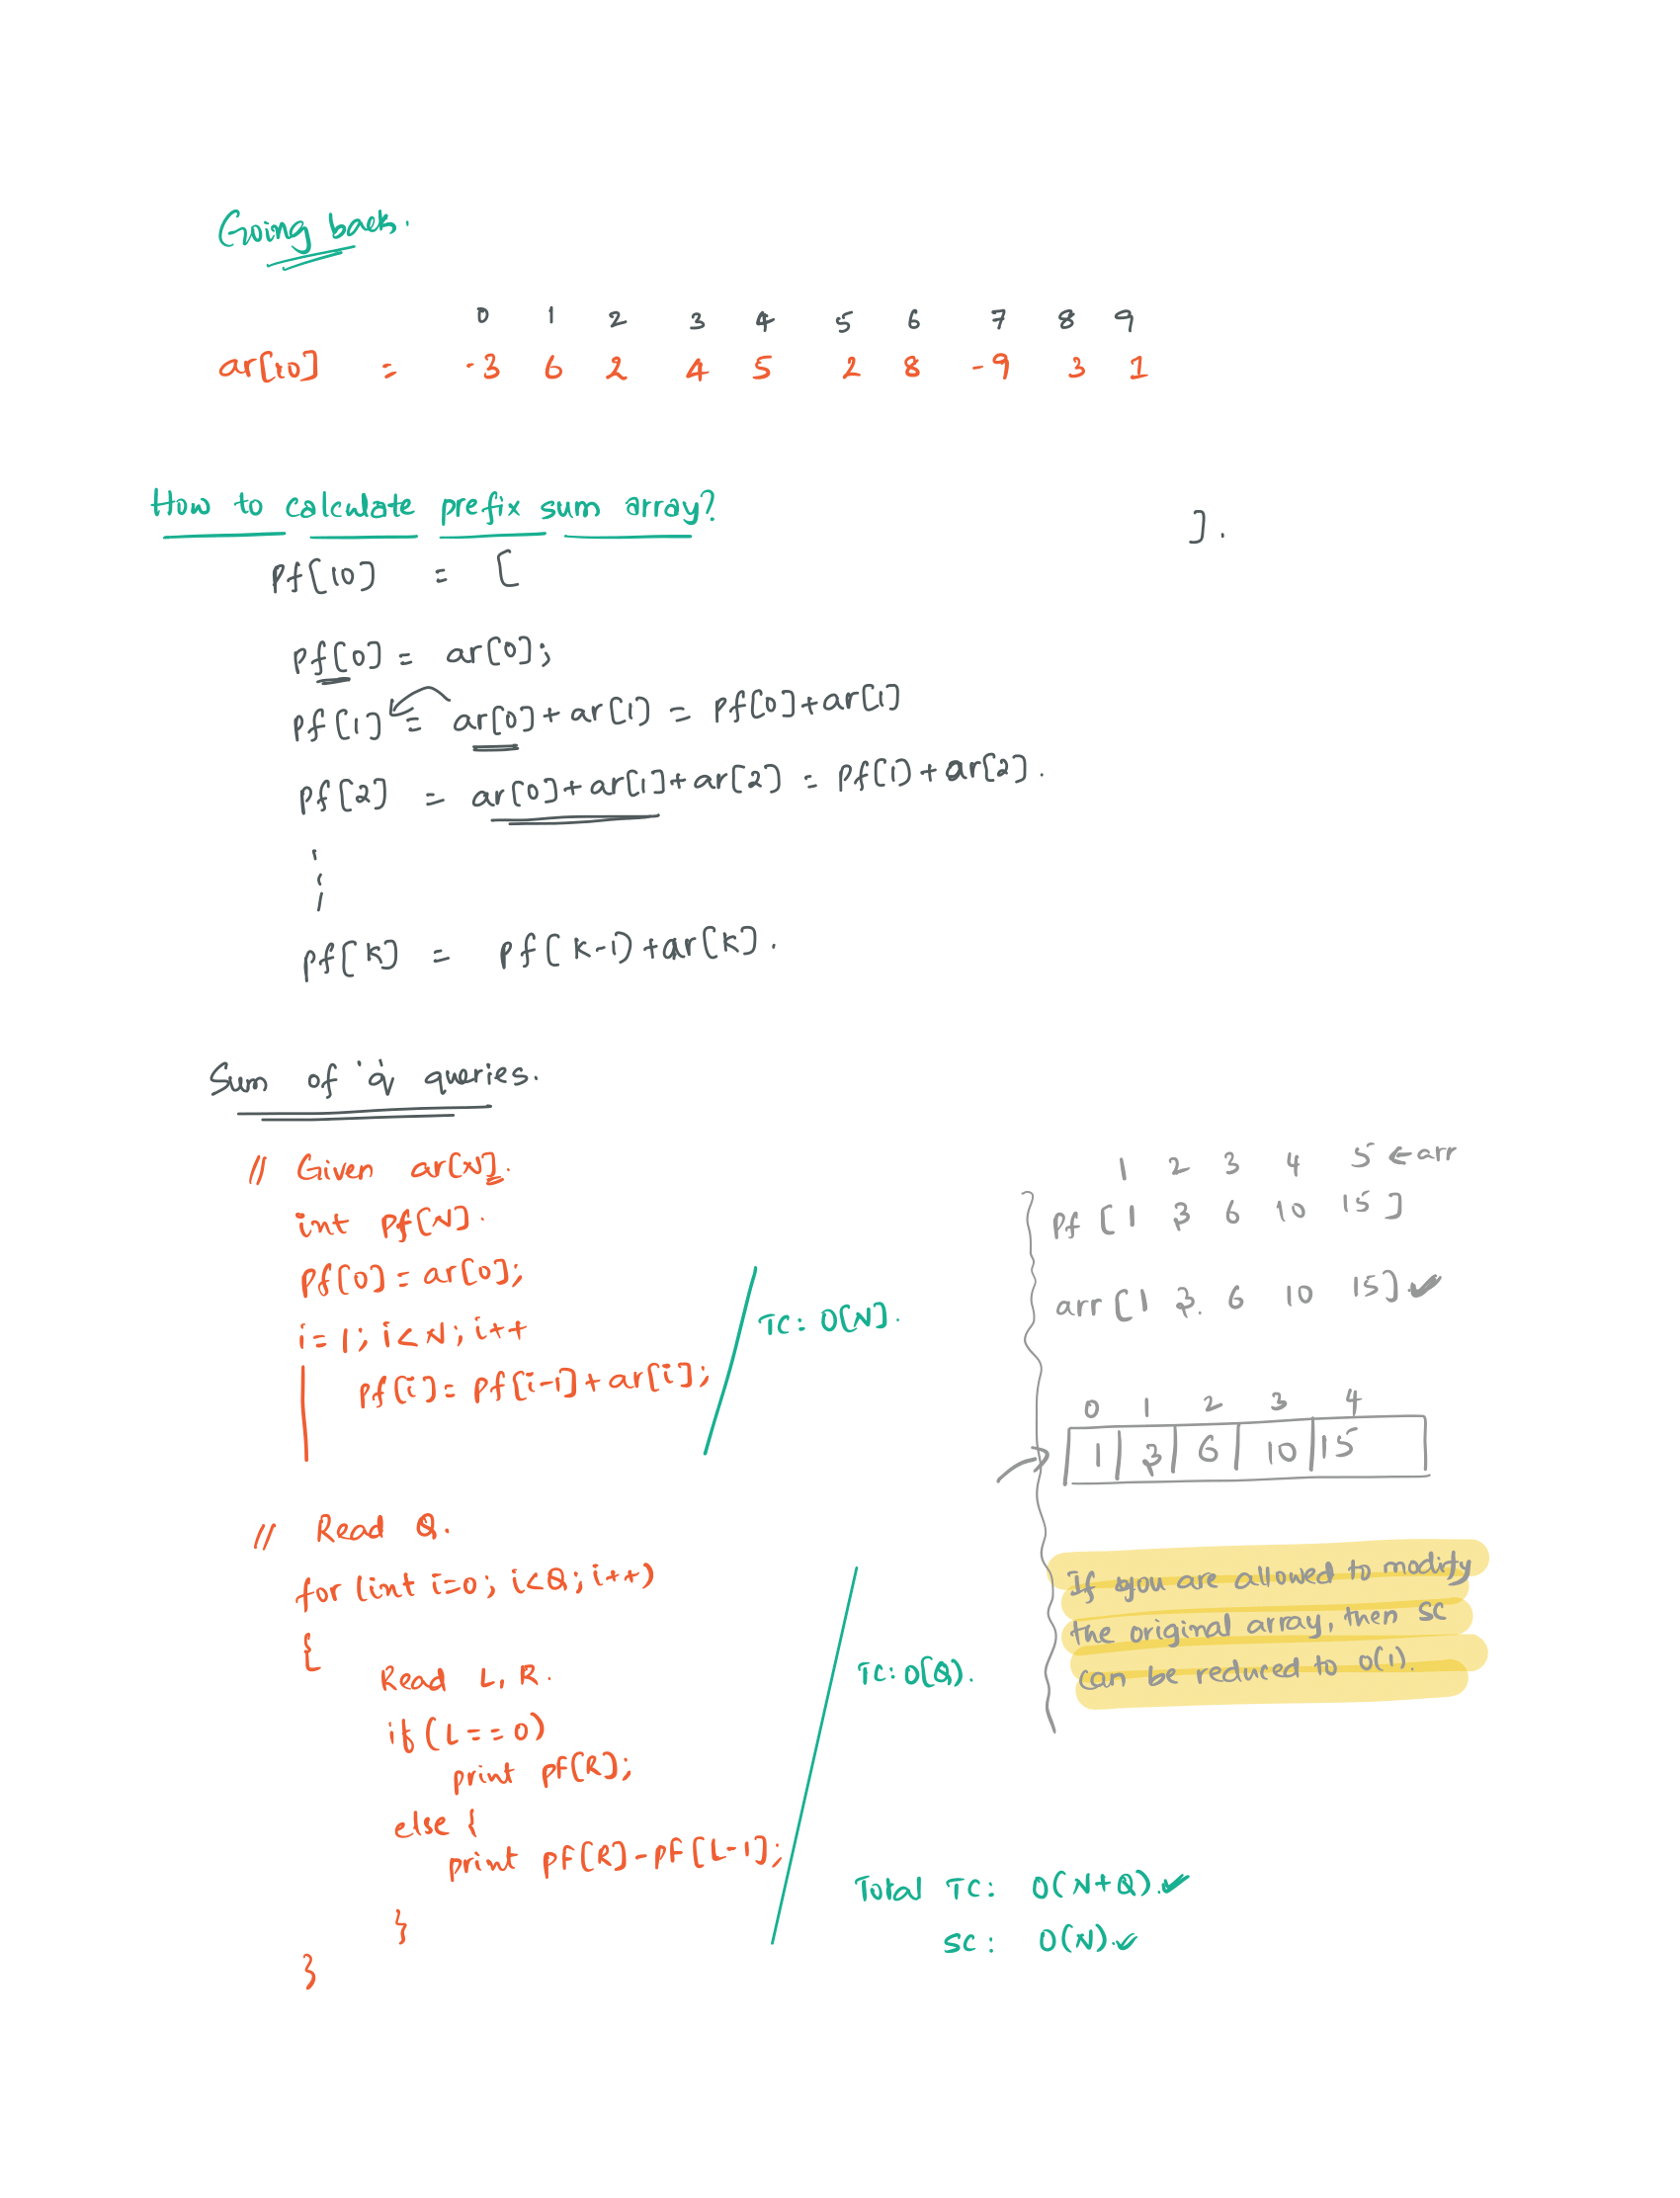 Going back.
0 1 2 3 4 5 6 7 8 9
ar[10] = -3 6 2 4 5 2 8 -9 3 1
How to calculate prefix sum array?
pf[10] = [ ].
pf[0] = ar[0];
pf[1] = ar[0]+ar[1] = pf[0]+ar[1]
pf[2] = ar[0]+ar[1]+ar[2] = pf[1]+ar[2].
pf[K] = pf[K-1]+ar[K].
Sum of 'q' queries.
// Given ar[N].
int pf[N].
pf[0] = ar[0];
i=1; i<N; i++
pf[i] = pf[i-1]+ar[i];
TC: O[N].
// Read Q.
for(int i=0; i<Q; i++)
{
Read L, R.
if(L==0)
print pf[R];
else {
print pf[R]-pf[L-1];
}
}
TC: O(Q).
Total TC: O(N+Q).✓
SC: O(N).✓
1 2 3 4 5 ←arr
pf [1 3 6 10 15]
arr [1 3. 6 10 15].✓
0 1 2 3 4
1 3 6 10 15
If you are allowed to modify
the original array, then SC
can be reduced to O(1).